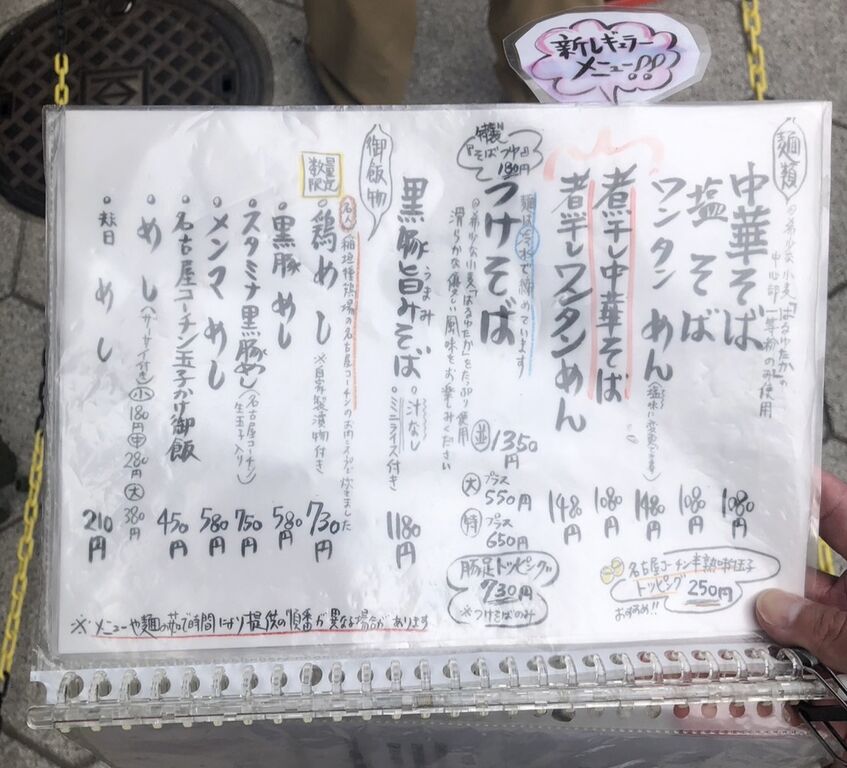 新レギュラー
メニュー!!
麺類
◎希少な小麦「はるゆたか」の
中心部「一等粉のみ」使用
中華そば 1080円
塩そば 1080円
ワンタンめん (塩味に変更できます) 1480円
煮干し中華そば 1080円
煮干しワンタンめん 1480円
名古屋コーチン半熟味玉子
トッピング 250円
おすすめ!!
特製
『そばつゆ』
180円
つけそば
麺は冷水で締めています
◎希少な小麦「はるゆたか」をたっぷり使用
滑らかな優しい風味をお楽しみください
並 1350円
大 プラス 550円
特 プラス 650円
豚足トッピング
730円
※つけそばのみ
黒豚旨みそば
うまみ
○汁なし
○ミニライス付き
1180円
御飯物
数量
限定
名人
稲垣種鶏場の名古屋コーチンのお肉とスープで炊きました
・鶏めし ※自家製漬物付き 730円
・黒豚めし 580円
・スタミナ黒豚めし (名古屋コーチン生玉子入り) 750円
・メンマめし 580円
・名古屋コーチン玉子かけ御飯 450円
・めし (ザーサイ付き) 小180円 中280円 大380円
めし 210円
※メニューや麺の茹で時間により提供の順番が異なる場合があります